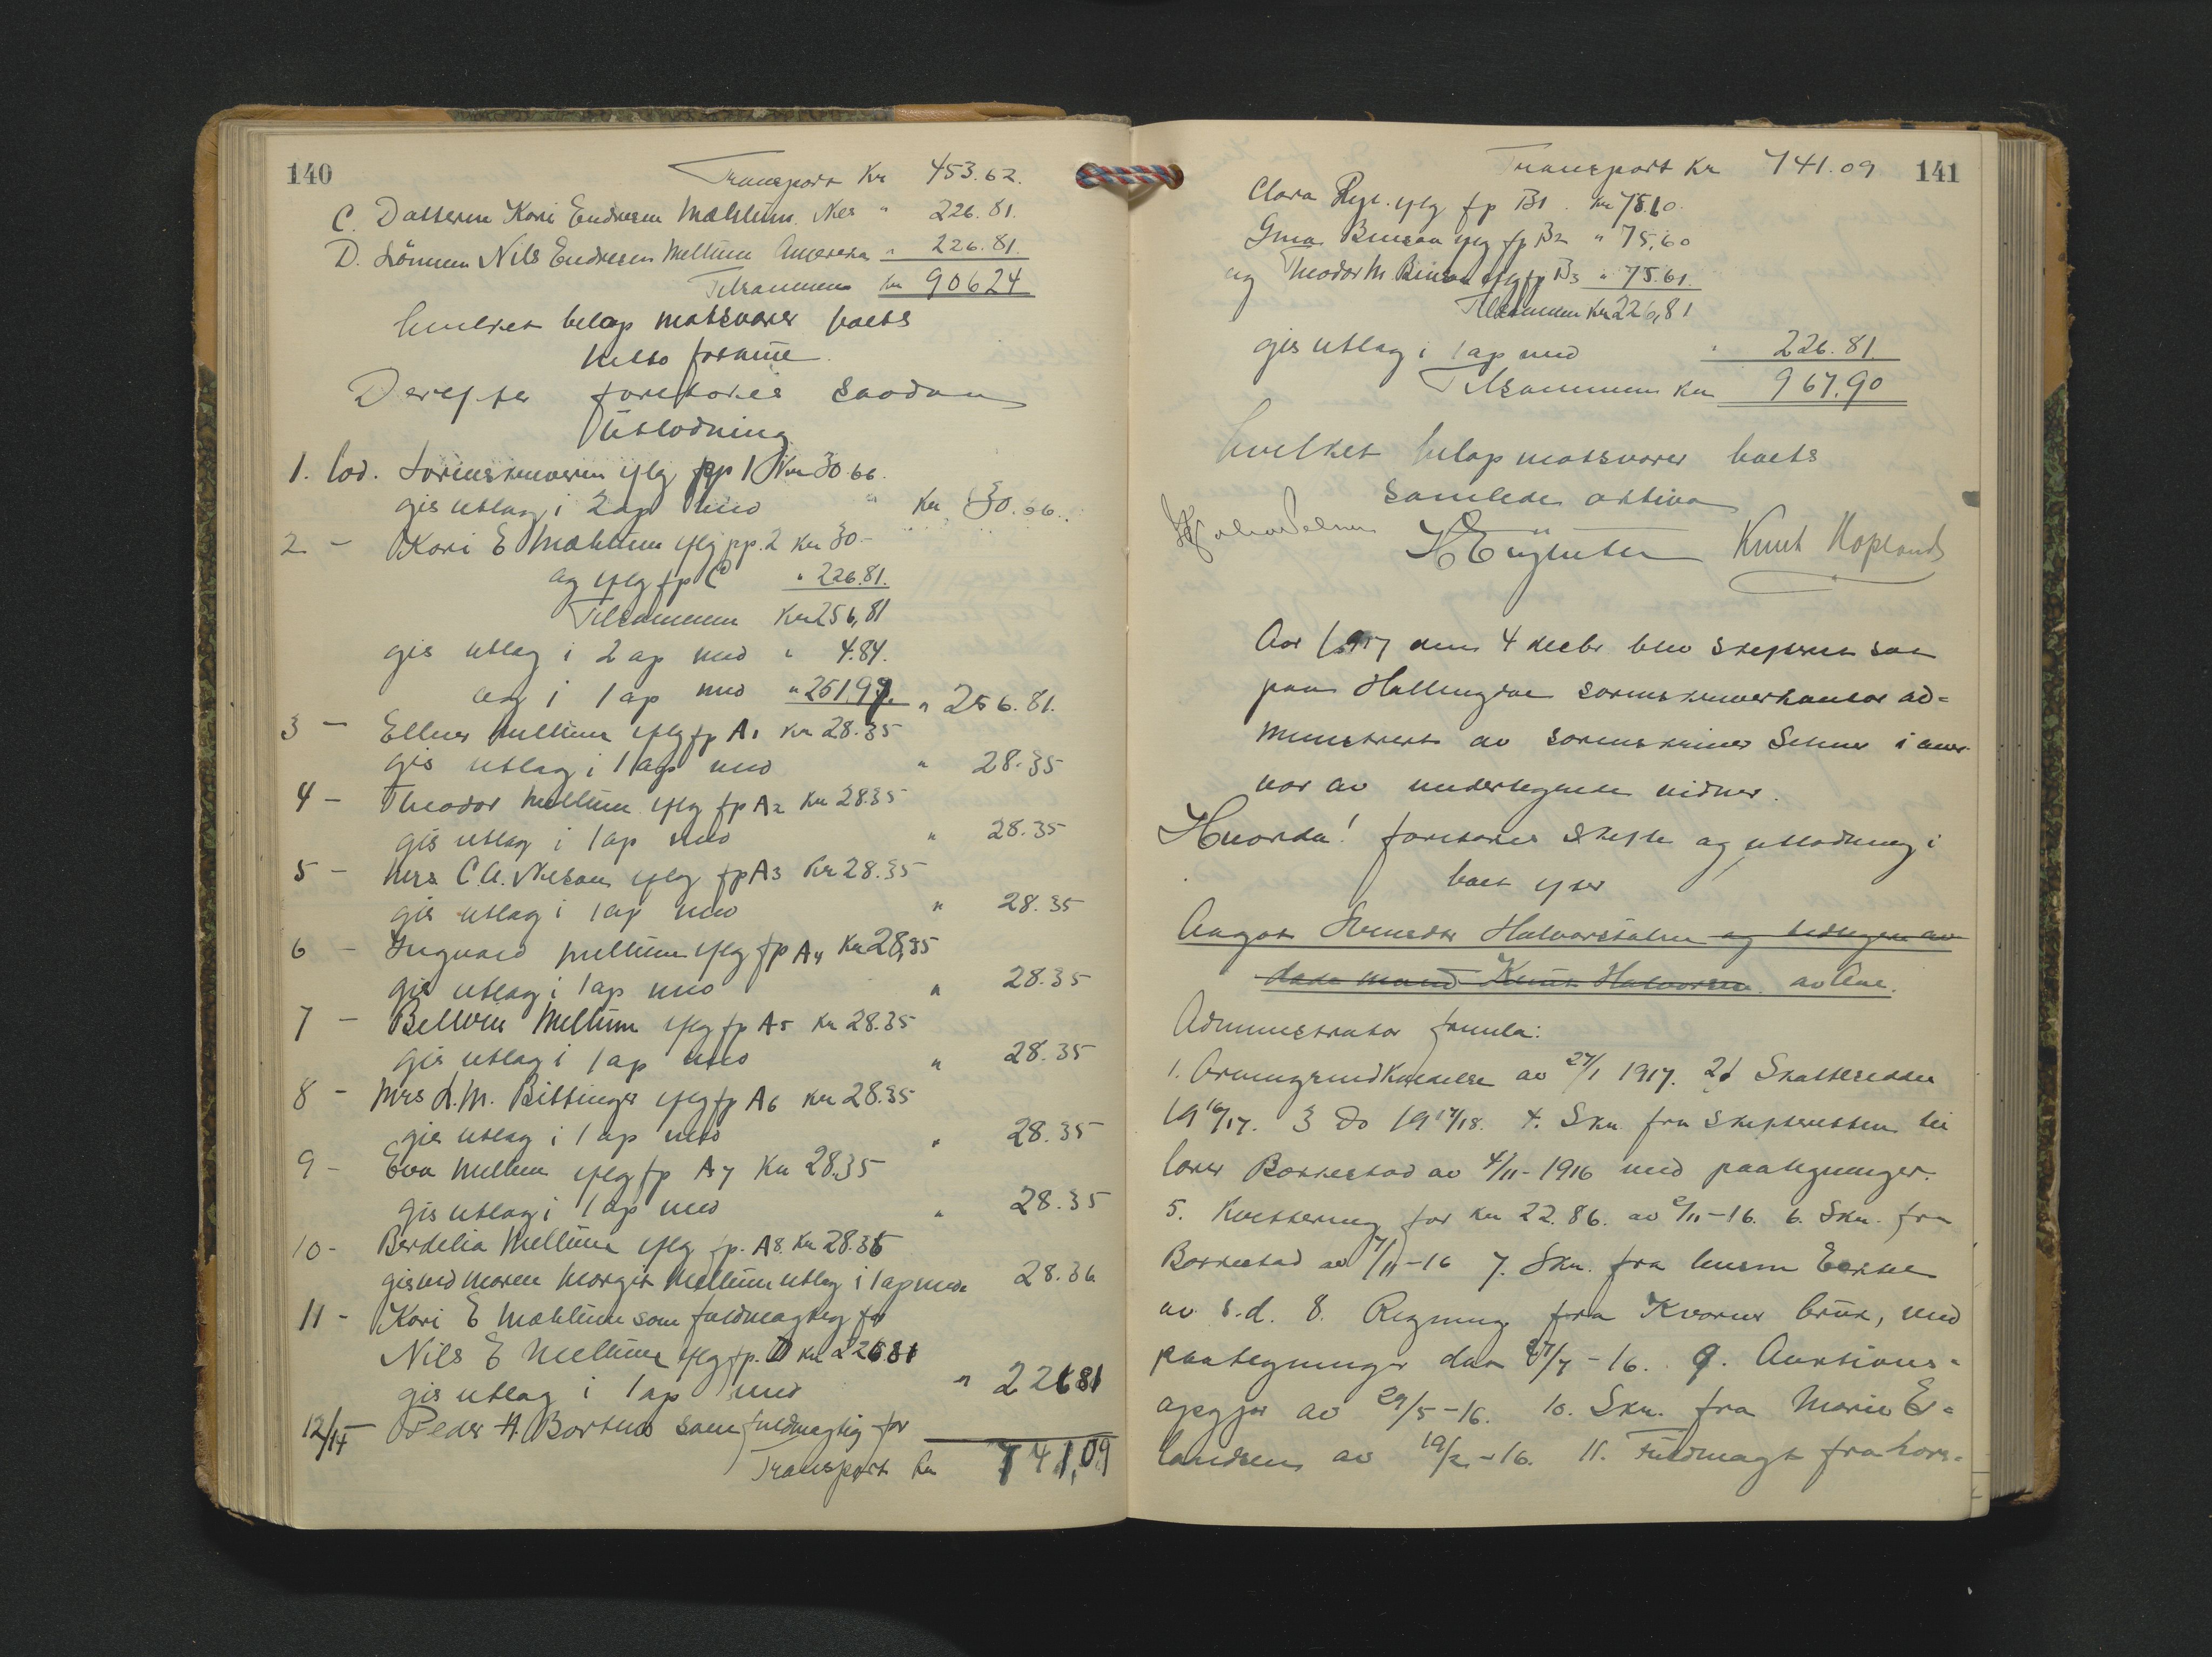 140
Transport Kr 453.62.
C. Datteren Kari Endresen Mæhlum Nes " 226.81.
D. Sønnen Nils Endresen Mellum Amerika " 226.81.
Tilsammen kr 90624
hvilket beløp motsvarer boets
netto formue.
Derefter foretokes saadan
Utlodning
1. lod. Sorenskriveren iflg pp 1 Kr 30 66.
gis utlag i 2 ap med " Kr 30.66.
2 - Kari E Mæhlum iflg pp. 2 Kr 30.-
og iflg fp C " 226.81.
Tilsammen Kr 256,81
gis utlag i 2 ap med " 4.84.
og i 1 ap med " 251.97. " 256.81.
3 - Ellner Mellum iflg fp A1 Kr 28.35
gis utlag i 1 ap med " 28.35
4 - Theodor Mellum iflg fp A2 Kr 28.35
gis utlag i 1 ap med " 28.35
5 - Mrs C.A. Nelson iflg fp A3 Kr 28.35
gis utlag i 1 ap med " 28.35
6 - Ingvald Mellum iflg fp A4 Kr 28,35
gis utlag i 1 ap med " 28.35
7 - Mellum iflg fp A5 Kr 28.35
gis utlag i 1 ap med " 28.35
8 - Mrs L.M. Bittinger iflg fp A6 Kr 28.35
gis utlag i 1 ap med " 28.35
9 - Eva Mellum iflg fp A7 Kr 28.35
gis utlag i 1 ap med " 28.35
10 - Berdelia Mellum iflg fp. A8. Kr 28.36
gis ved moren Margit Mellum utlag i 1 ap med 28.36
11 - Kari E Mæhlum som fuldmægtig for
Nils E Mellum iflg fp. D Kr 22681
gis utlag i 1 ap med " 22681
12/14 - Peder A. Bortnes som fuldmægtig for
Transport kr 741,09
141
Transport Kr 741.09
Clara iflg fp B1. Kr 75.60.
Gina Benson iflg fp B2 " 75,60
og Theodor M Benson iflg fp B3 " 75.61.
Tilsammen Kr 226,81
gis utlag i 1 ap med " 226.81
Tilsammen Kr 967.90
hvilket beløp motsvarer boets
samlede aktiva
Knut Kopland
Aar 1917 den 4 decbr blev skifteret sat
paa Hallingdal sorenskriverkontor ad-
ministrert av sorenskriver i nær-
vær av undertegnede vidner.
Hvorda! foretokes skifte og utlodning i
boet efter
Aagot Halvorsdatter og
Knut Halvorsen. av Aal.
Administrator framla:
1. av 27/1 1917. 2) Skatteseddel
1916/17. 3 Do 1917/18. 4. Skr. fra skifteretten til
Borrestad av 4/11-1916 med paategninger.
5. Kvittering for kr 22.86. av 2/11-16. 6. Skr. fra
Borrestad av 7/11-16 7. Skr. fra
av s.d. 8. Regning fra bruk, med
paategninger dat 27/7-16. 9. Auktions-
opgjør av 29/5-16. 10. Skr. fra Marie E-
landsen av 19/2-16. 11. Fuldmagt fra